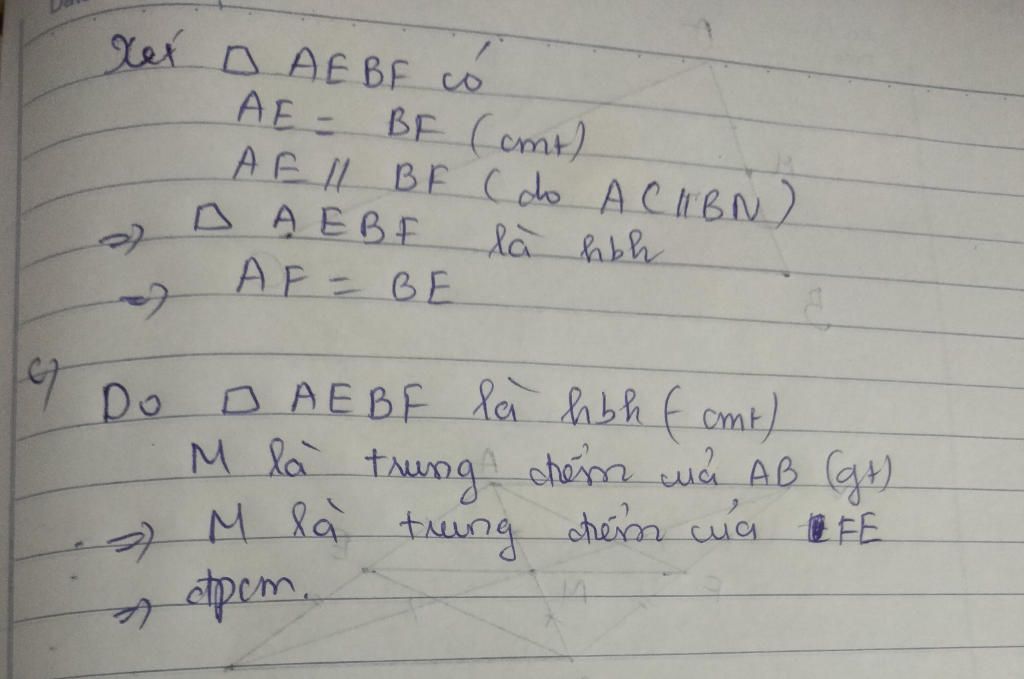 Xét □ AEBF có
AE = BF (cmt)
AE // BF (do AC // BN)
=> □ AEBF là hbh
=> AF = BE
c) Do □ AEBF là hbh (cmt)
M là trung điểm của AB (gt)
=> M là trung điểm của FE
=> đpcm.